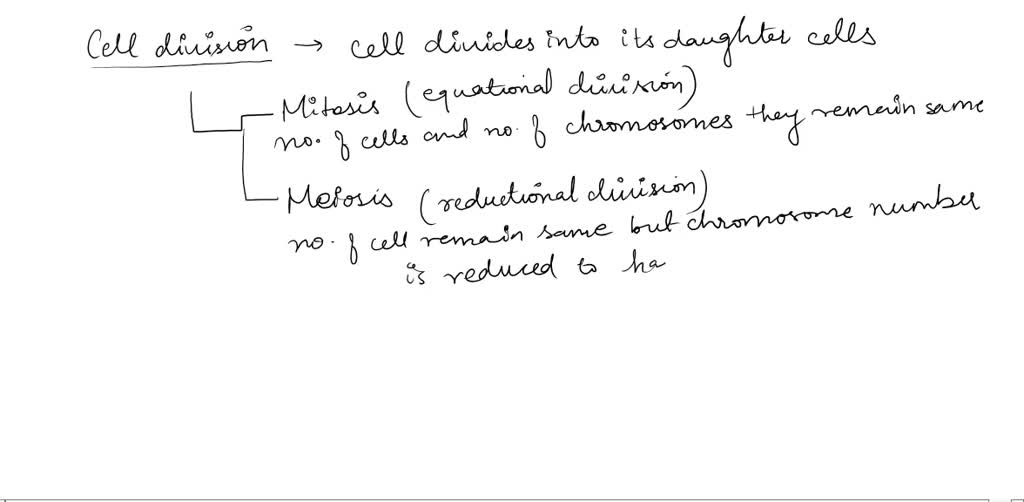 Cell division → cell divides into its daughter cells
Mitosis (equational division)
no. of cells and no. of chromosomes they remain same
Meiosis (reductional division)
no. of cell remain same but chromosome number
is reduced to ha